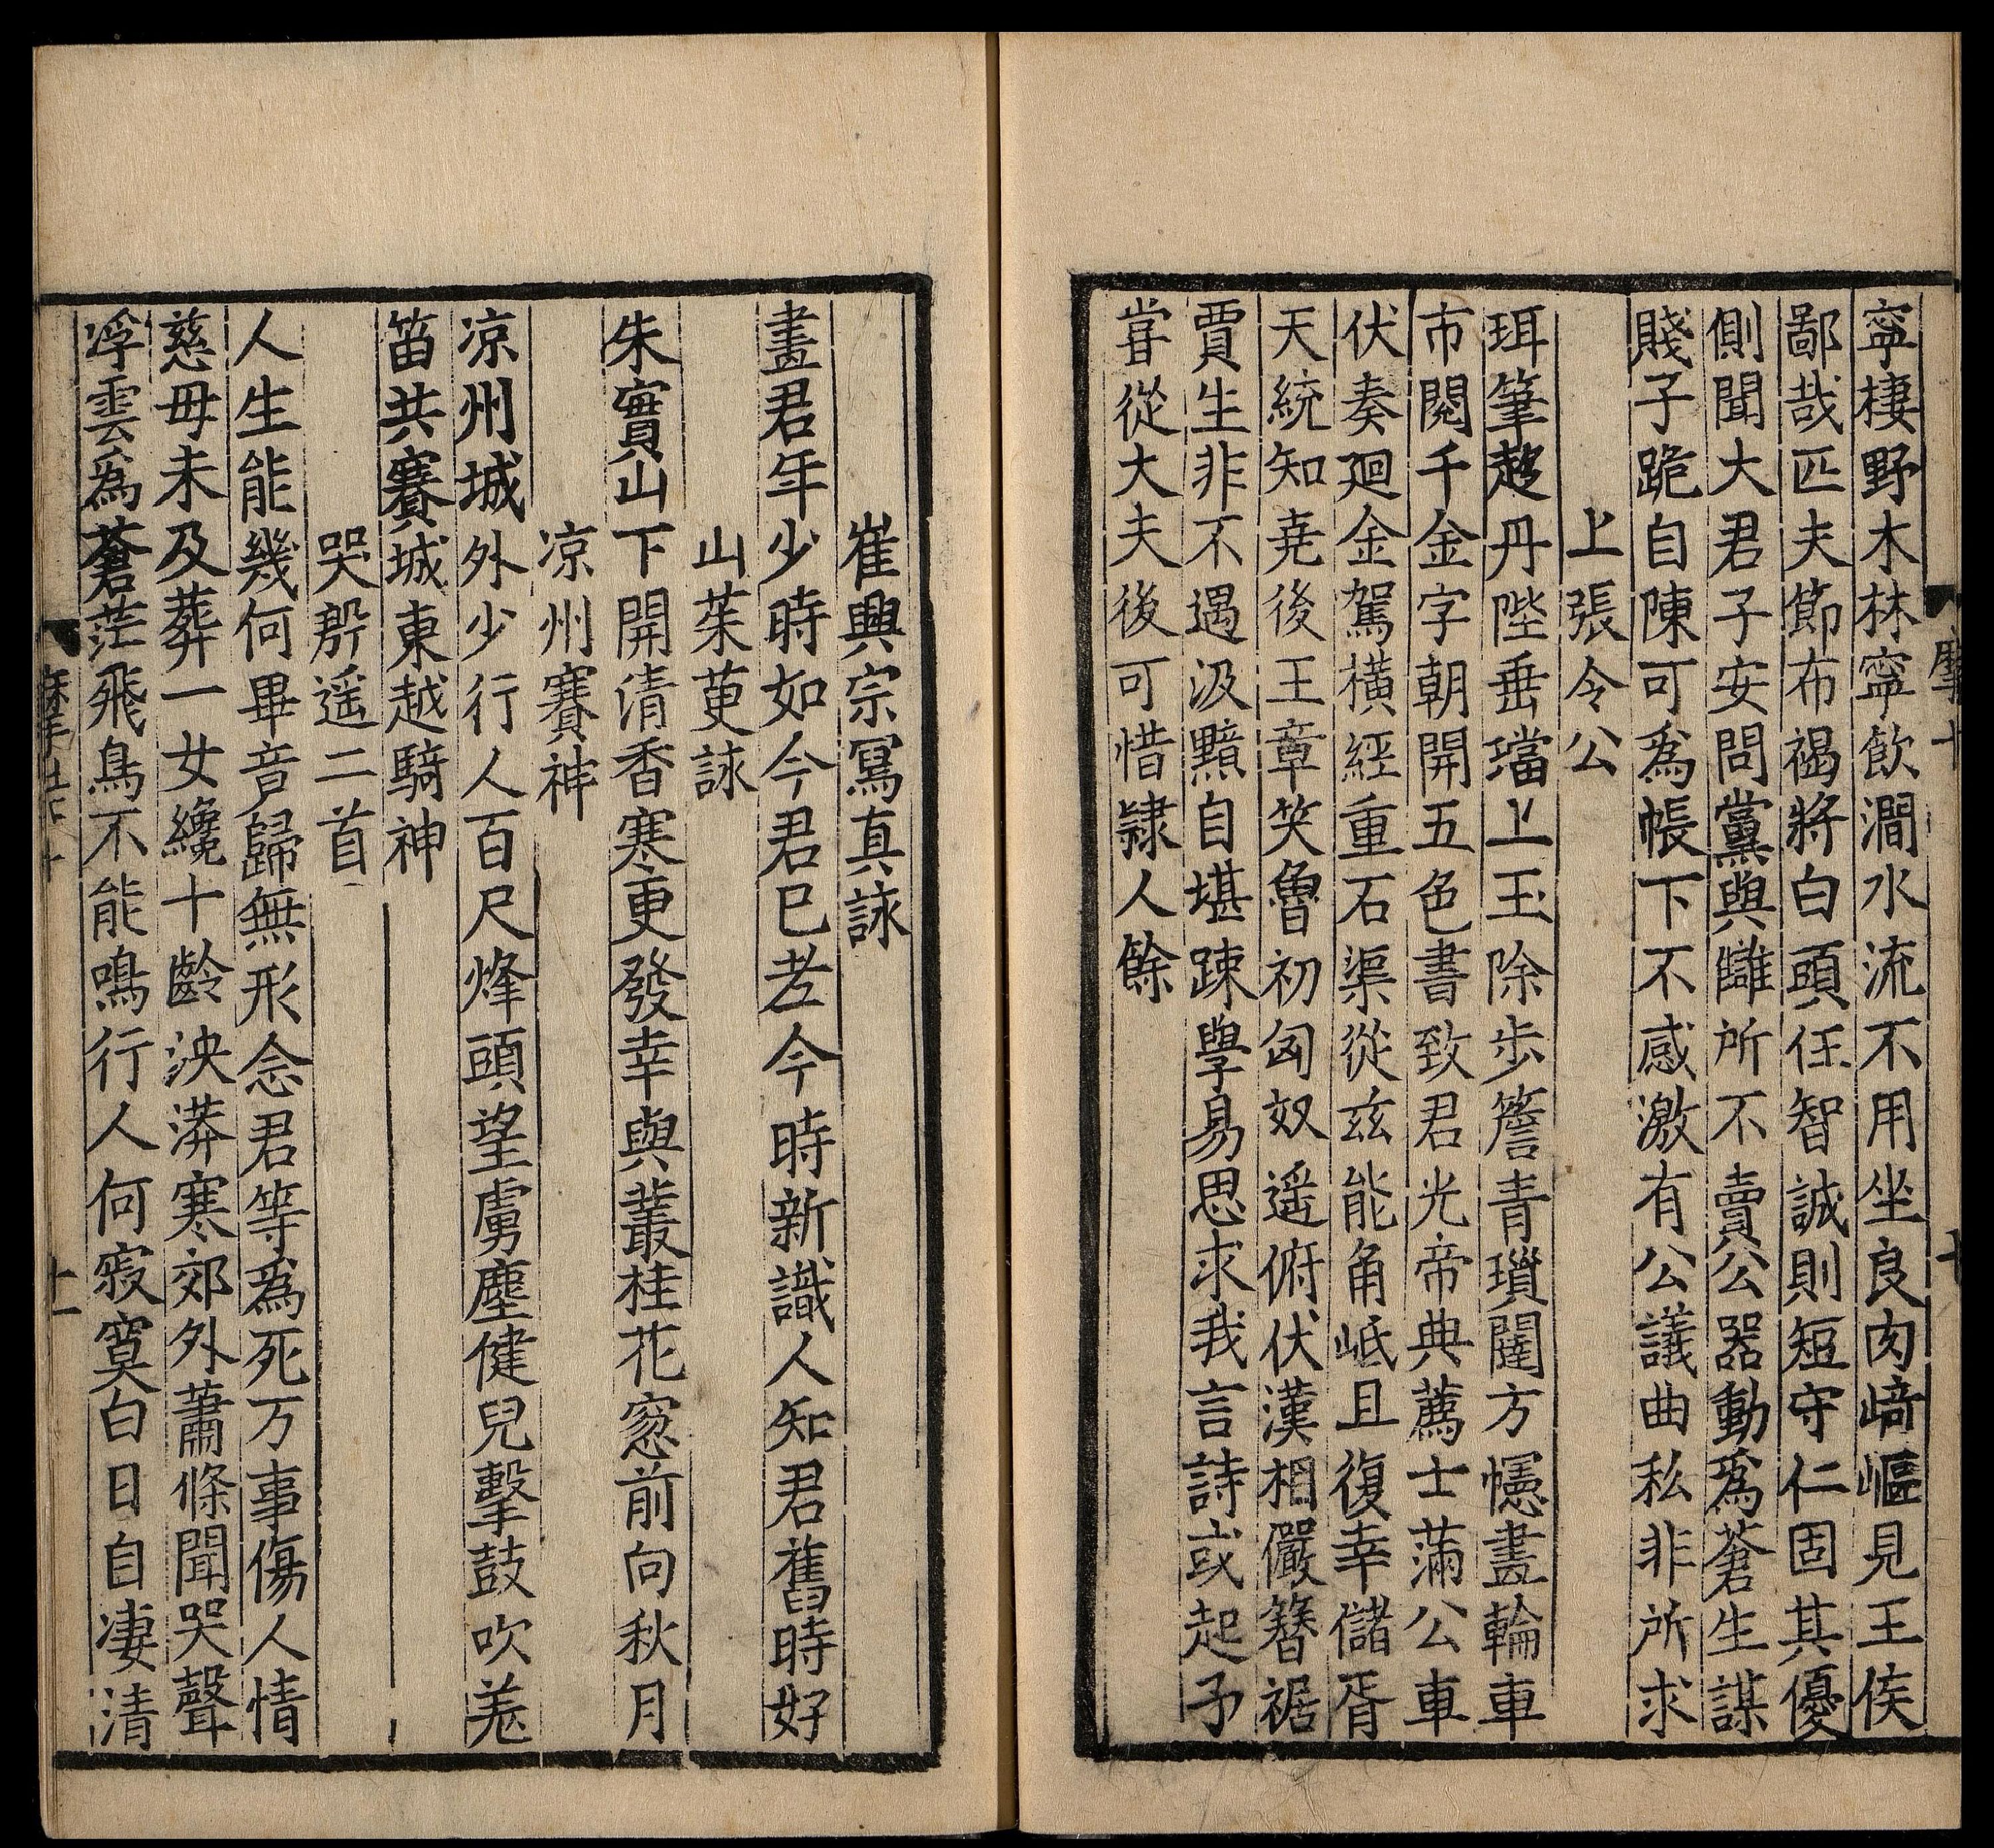 寧棲野木林寧飲澗水流不用坐良肉﨑嶇見王侯
鄙哉匹夫節布褐將白頭任智誠則短守仁固其優
側聞大君子安問黨與讎所不賣公器動爲蒼生謀
賤子跪自陳可爲帳下不感激有公議曲私非所求
上張令公
珥筆趍丹陛垂璫上玉除步簷青瑣闥方幰畫輪車
市閱千金字朝開五色書致君光帝典薦士蒲公車
伏奏廻金駕橫經重石渠從兹能角崏且復幸儲胥
天統知尭後王章笑魯初匈奴遥俯伏漢相儼簪裾
賈生非不遇汲黯自堪踈學易思求我言詩或起予
甞從大夫後可惜隸人餘
崔興宗冩真詠
畫君年少時如今君已老今時新識人知君舊時好
山茱萸詠
朱實山下開清香寒更發幸與叢桂花窓前向秋月
凉州賽神
凉州城外少行人百尺烽頭望虜塵健兒擊鼓吹羗
笛共賽城東越騎神
哭殷遥二首
人生能幾何畢竟歸無形念君等爲死万事傷人情
慈母未及葬一女纔十齡泱漭寒郊外蕭條聞哭聲
浮雲爲蒼茫飛鳥不能鳴行人何寂寞白日自凄清
十一